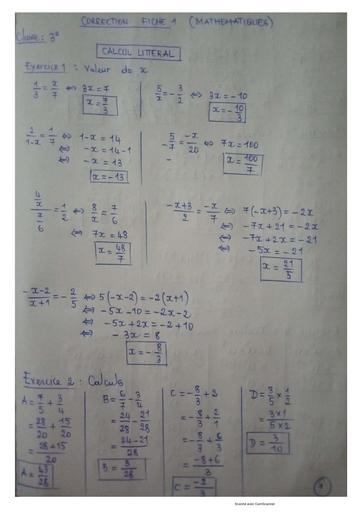 CORRECTION FICHE 1 (MATHEMATIQUES)
Classe: 3e
CALCUL LITTERAL
Exercice 1 : Valeur de x
1/3 = x/7 ⇔ 3x = 7
x = 7/3
5/x = -3/2 ⇔ 3x = -10
x = -10/3
2/(1-x) = 1/7 ⇔ 1-x = 14
⇔ -x = 14-1
⇔ -x = 13
x = -13
-5/7 = -x/20 ⇔ 7x = 100
x = 100/7
4/x / 7/6 = 1/2 ⇔ 8/x = 7/6
⇔ 7x = 48
x = 48/7
(-x+3)/2 = -x/7 ⇔ 7(-x+3) = -2x
⇔ -7x+21 = -2x
⇔ -7x+2x = -21
⇔ -5x = -21
x = 21/5
(-x-2)/(x+1) = -2/5 ⇔ 5(-x-2) = -2(x+1)
⇔ -5x-10 = -2x-2
⇔ -5x+2x = -2+10
⇔ -3x = 8
x = -8/3
Exercice 2 : Calculs
A = 7/5 + 3/4
= 28/20 + 15/20
= (28+15)/20
B = 6/7 - 3/4
= 24/28 - 21/28
= (24-21)/28
B = 3/28
C = -8/3 + 2
= -8/3 + 2/1
= -8/3 + 6/3
= (-8+6)/3
C = -2/3
D = 3/5 × 1/2
= (3×1)/(5×2)
D = 3/10
1
Scanné avec CamScanner